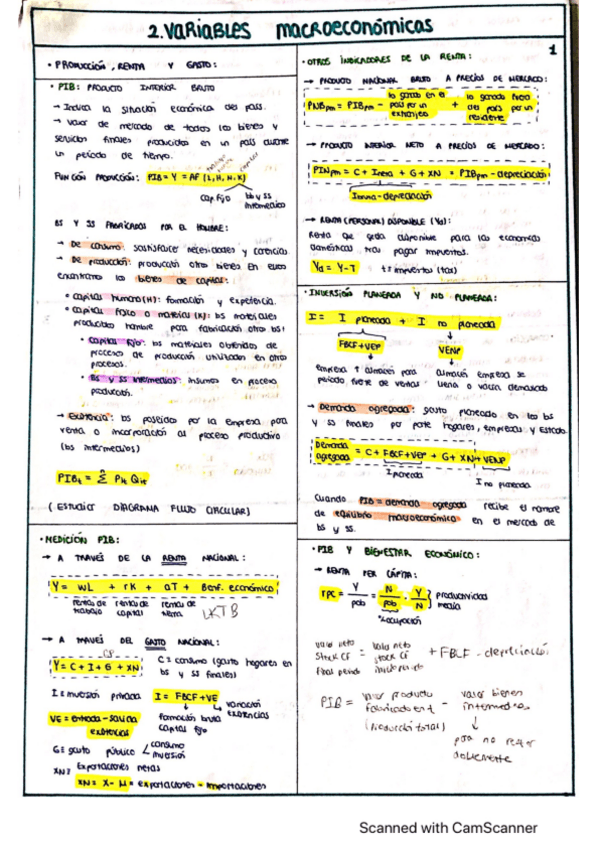 2. VARIABLES macroeconómicas
1
• PRODUCCIÓN, RENTA Y GASTO:
• PIB: PRODUCTO INTERIOR BRUTO
→ Indica la situación económica del país.
→ valor de mercado de todos los bienes y
servicios finales producidos en un país durante
un período de tiempo.
FUNCIÓN PRODUCCIÓN: PIB = Y = AF (L, H, N, K)
cap. fijo
bb y ss
intermedios
BS Y SS FABRICADOS POR EL HOMBRE:
→ De consumo: satisfacer necesidades y carencias.
→ De producción: producción otros bienes. En ellos
encontramos los bienes de capital:
• capital humano (H): formación y experiencia.
• capital físico o material (K): bs materiales
producidos hombre para fabricación otros bs:
• capital fijo: bs materiales obtenidos de
procesos de producción utilizados en otros
procesos.
• Bs y ss intermedios: insumos en proceso
producción.
→ Existencia: bs poseidos por la empresa para
venta o incorporación al proceso productivo
(bs intermedios)
PIBt = Σ Pit Qit
(Estudiar DIAGRAMA FLUJO CIRCULAR)
• MEDICIÓN PIB:
→ A TRAVÉS DE LA RENTA NACIONAL:
Y = wL + rK + aT + Benf. económico
rentas de trabajo
rentas de capital
rentas de tierra
LKTB
→ A TRAVÉS DEL GASTO NACIONAL:
Y = C + I + G + XN
C = consumo (gasto hogares en
bs y ss finales)
I = inversión privada
I = FBCF + VE
VE = entrada - salida
existencias
formación bruta
capital fijo
variación
existencias
G = gasto público
consumo
inversión
XN = Exportaciones netas
XN = X - M = exportaciones - importaciones
• OTROS INDICADORES DE LA RENTA:
→ PRODUCTO NACIONAL BRUTO A PRECIOS DE MERCADO:
PNBpm = PIBpm - lo ganado en el país por un extranjero + lo ganado fuera del país por un residente
→ PRODUCTO INTERIOR NETO A PRECIOS DE MERCADO:
PINpm = C + Ineta + G + XN = PIBpm - depreciación
Ibruta - depreciación
→ RENTA (PERSONAL) DISPONIBLE (Yd):
Renta que queda disponible para las economías
domésticas tras pagar impuestos.
Yd = Y - T
t = impuestos (tax)
• INVERSIÓN PLANEADA Y NO PLANEADA:
I = I planeada + I no planeada
FBCF + VEP
VENP
empresa ↑ almacén para
período fuerte de ventas
almacén empresa se
llena o vacía demasiado
→ Demanda agregada: gasto planeado en los bs
y ss finales por parte hogares, empresas y Estado.
Demanda agregada = C + FBCF + VEP + G + XN + VENP
I planeada
I no planeada
Cuando PIB = demanda agregada recibe el nombre
de equilibrio macroeconómico en el mercado de
bs y ss.
• PIB Y BIENESTAR ECONÓMICO:
→ RENTA PER CÁPITA:
rpc = Y/pob = N/pob · Y/N } productividad media
% ocupación
valor neto stock CF final periodo = valor neto stock CF inicio periodo + FBCF - depreciación
PIB = valor producto fabricado en t - valor bienes intermedios
(Producción total)
para no contar
doblemente
Scanned with CamScanner